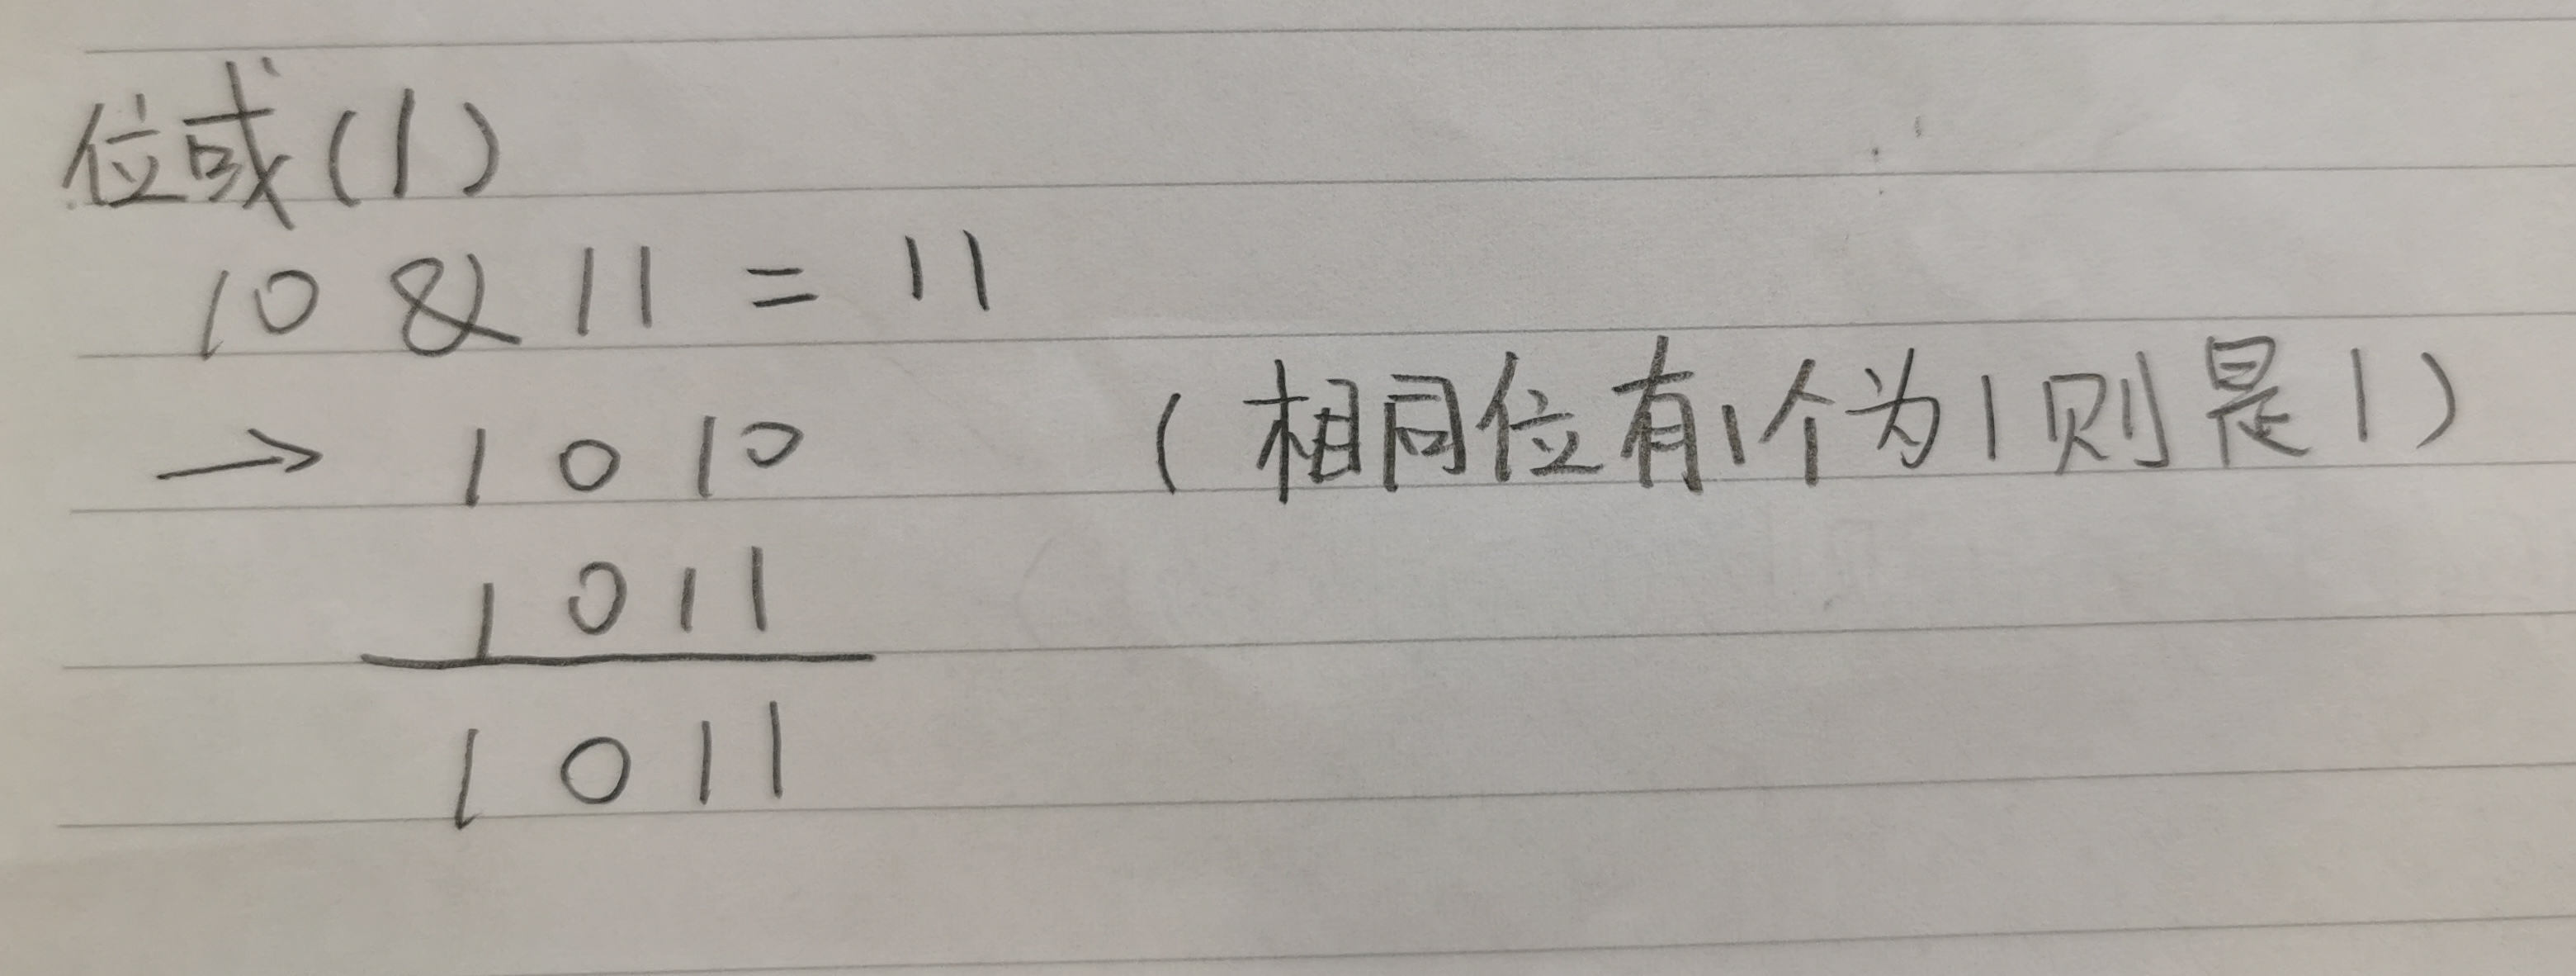 位或(|)
10 & 11 = 11
→ 1010 (相同位有1个为1则是1)
1011
1011